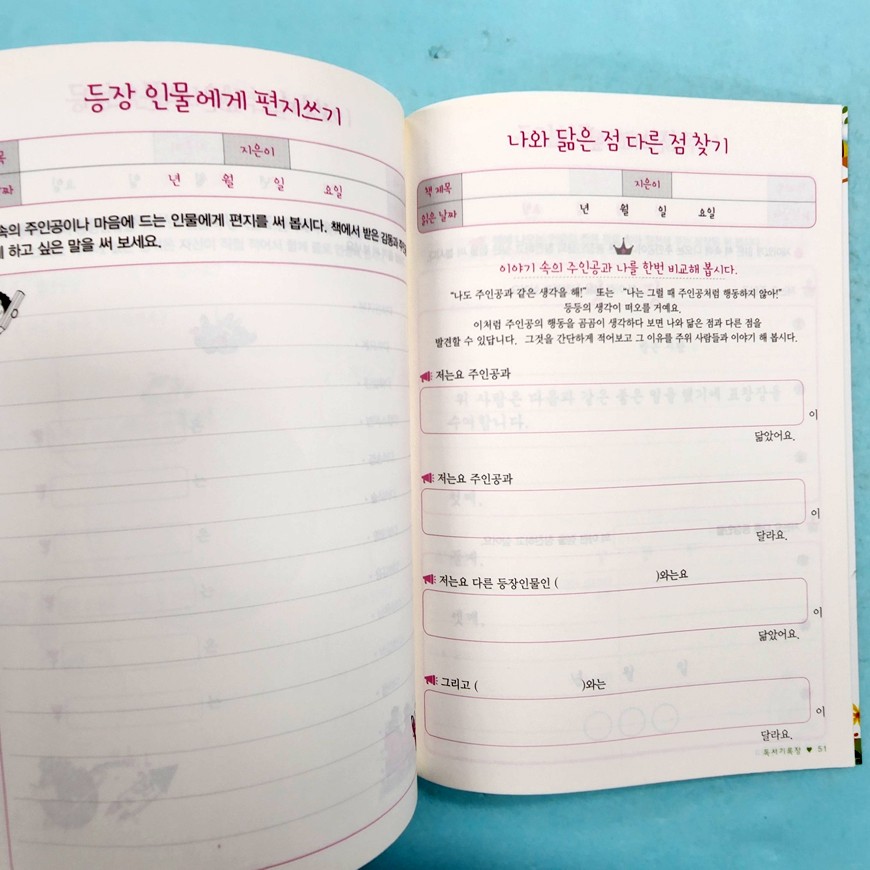 등장 인물에게 편지쓰기
지은이
년 월 일 요일
속의 주인공이나 마음에 드는 인물에게 편지를 써 봅시다. 책에서 받은 감동과
하고 싶은 말을 써 보세요.
나와 닮은 점 다른 점 찾기
책 제목 지은이
읽은 날짜 년 월 일 요일
이야기 속의 주인공과 나를 한번 비교해 봅시다.
“나도 주인공과 같은 생각을 해!” 또는 “나는 그럴 때 주인공처럼 행동하지 않아!”
등등의 생각이 떠오를 거예요.
이처럼 주인공의 행동을 곰곰이 생각하다 보면 나와 닮은 점과 다른 점을
발견할 수 있답니다. 그것을 간단하게 적어보고 그 이유를 주위 사람들과 이야기 해 봅시다.
저는요 주인공과
이
닮았어요.
저는요 주인공과
이
달라요.
저는요 다른 등장인물인 ( )와는요
이
닮았어요.
그리고 ( )와는
이
달라요.
독서기록장 ♥ 51